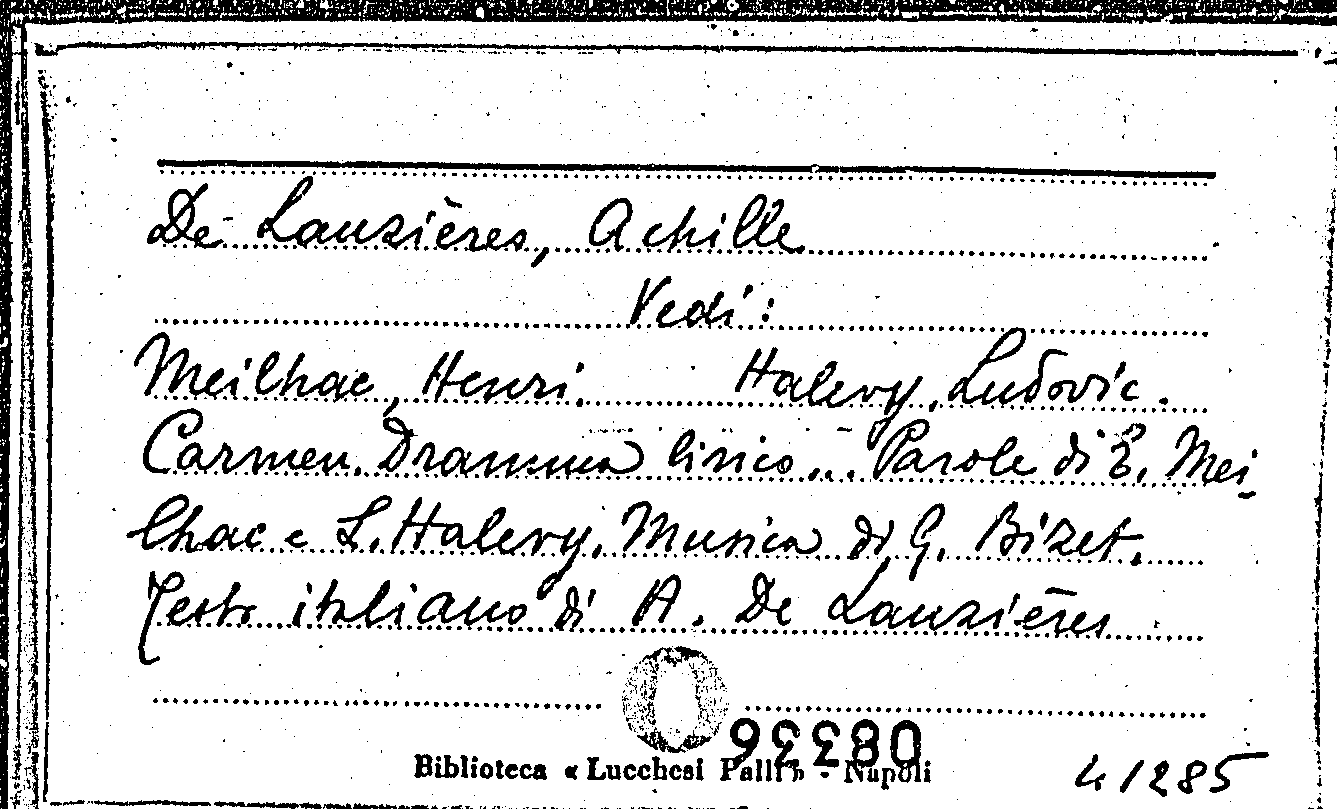 De Lauzières, Achille
Vedi:
Meilhac, Henri. Halevy, Ludovic.
Carmen. Dramma lirico... Parole di E. Mei-
lhac e L. Halevy. Musica di G. Bizet.
Testo italiano di A. De Lauzières
08336
Biblioteca « Lucchesi Palli » - Napoli
41285